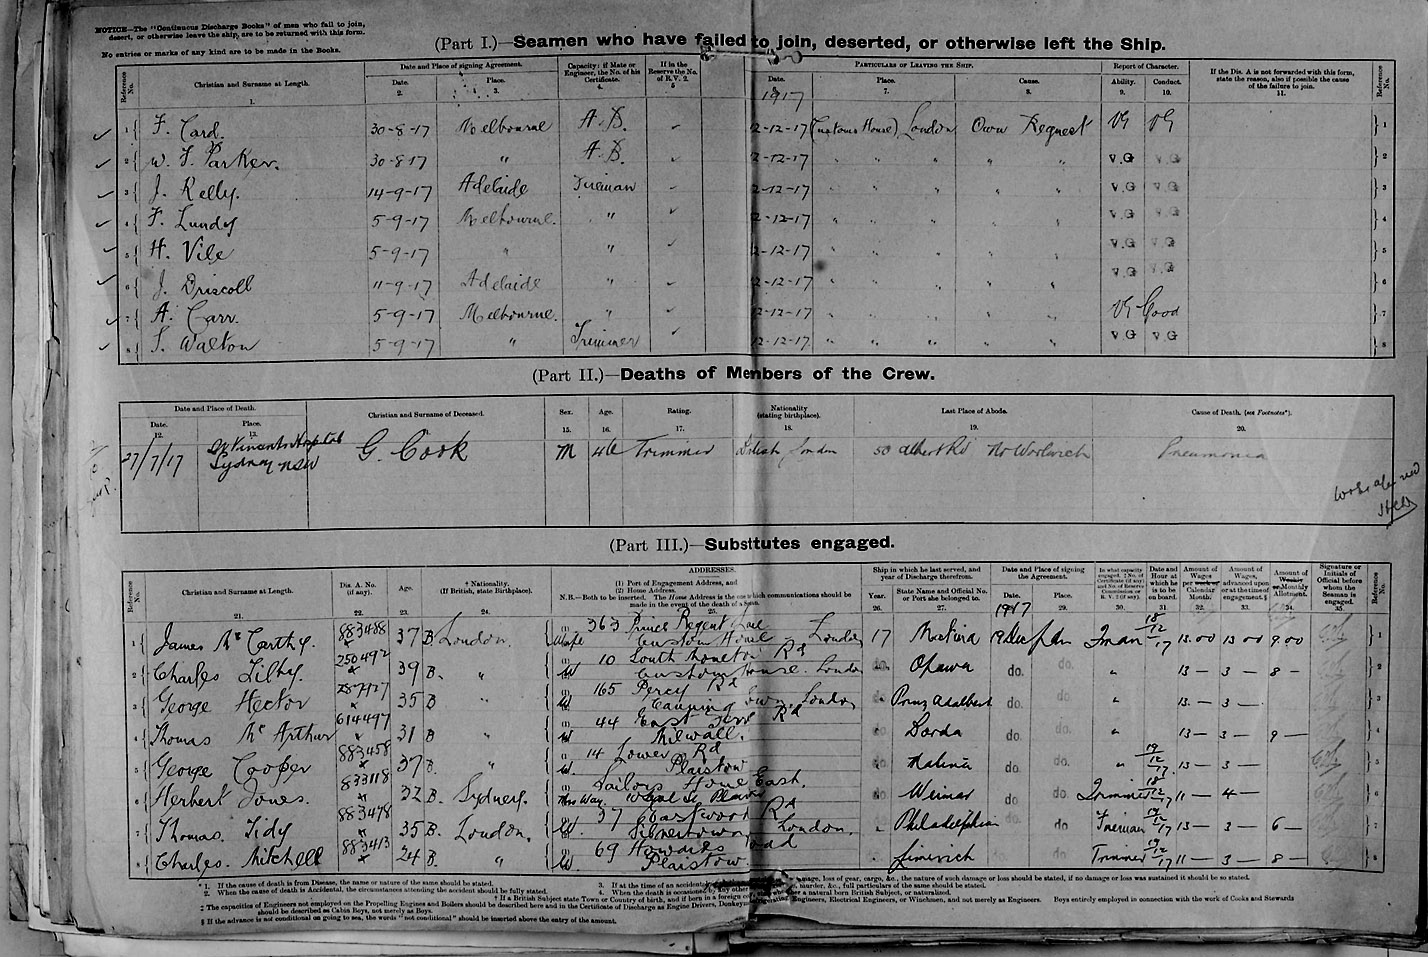 NOTICE—The "Continuous Discharge Books" of men who fail to join,
desert, or otherwise leave the ship, are to be returned with this form.
No entries or marks of any kind are to be made in the Books.
(Part I.)—Seamen who have failed to join, deserted, or otherwise left the Ship.
Reference No. Christian and Surname at Length. 1. Date and Place of signing Agreement. Date. 2. Place. 3. Capacity: if Mate or Engineer, the No. of his Certificate. 4. If in the Reserve the No. of R.V. 2. 5 Particulars of Leaving the Ship. Date. Place. 7. Cause. 8. Report of Character. Ability. 9. Conduct. 10. If the Dis. A is not forwarded with this form, state the reason, also if possible the cause of the failure to join. 11. Reference No.
1917
1 F. Card. 30-8-17 Melbourne A.B. 2-12-17 (Customs House) London Own Request VG VG 1
2 W. F. Parker. 30-8-17 " A.B. 2-12-17 " " " " V.G V.G 2
3 J. Kelly. 14-9-17 Adelaide Fireman 2-12-17 " " " " V.G V.G 3
4 F. Lundy 5-9-17 Melbourne. " 2-12-17 " " " " V.G V.G 4
5 H. Vile 5-9-17 " " 2-12-17 " " " " V.G V.G 5
6 J. Driscoll 11-9-17 Adelaide " 2-12-17 " " " " V.G V.G 6
7 A. Carr. 5-9-17 Melbourne. " 2-12-17 " " " " VG Good 7
8 S. Walton 5-9-17 " Trimmer 2-12-17 " " " " V.G V.G 8
(Part II.)—Deaths of Members of the Crew.
Date and Place of Death. Date. 12. Place. 13. Christian and Surname of Deceased. Sex. 15. Age. 16. Rating. 17. Nationality (stating birthplace). 18. Last Place of Abode. 19. Cause of Death. (see Footnotes*). 20.
27/7/17 St Vincents Hospital Sydney NSW G. Cook M 46 Trimmer British London 50 Albert Rd Nr Woolwich Pneumonia
(Part III.)—Substitutes engaged.
Reference No. Christian and Surname at Length. 21. Dis. A. No. (if any). 22. Age. 23. † Nationality. (If British, state Birthplace). 24. ADDRESSES. (1) Port of Engagement Address, and (2) House Address. N.B.—Both to be inserted. The House Address is the one to which communications should be made in the event of the death of a Seaman. 25. Ship in which he last served, and year of Discharge therefrom. Year. 26. State Name and Official No. or Port she belonged to. 27. Date and Place of signing the Agreement. Date. Place. 29. In what capacity engaged. 30. Date and Hour at which he is to be on board. 31 Amount of Wages per Calendar Month. 32. Amount of Wages, advanced upon or at the time of engagement.§ 33. Amount of Monthly Allotment. 34. Signature or Initials of Official before whom the Seaman is engaged. 35. Reference No.
1917
1 James McCarthy. 883488 37 B. London. Wife 363 Prince Regent Lane Custom House London 17 Matina 19 Dec Ldn Fman 18/12/17 13.00 13.00 9.00 1
2 Charles Tilby. 250492 39 B. " W 10 South Moulton Rd Custom House. London do. Opawa do. do. " 13— 3— 8— 2
3 George Hector 35 B " W 165 Percy Rd Canning Town, London Prinz Adalbert do. do. " 13— 3— 3
4 Thomas McArthur 614497 31 B " W 44 East Ferry Rd Milwall. Dorda do. do. " 13— 3— 9— 4
5 George Cooper 883458 37 B. " W. 14 Lower Rd Plaistow Matina do. do " 19/12/17 13— 3— 5
6 Herbert Jones. 833118 32 B. Sydney. Mrs Way. Sailors Home East, Weimar do do Trimmer 18/12/17 11— 4— 6
7 Thomas Tidy 883478 35 B. London. W. 37 Eastwood Rd Silvertown London. Philadelphia do Fireman 19/12/17 13— 3— 6— 7
8 Charles. Mitchell 883413 24 B. " W 69 Howards Road Plaistow. Limerick Trimmer 19/12/17 11— 3— 8— 8
* 1. If the cause of death is from Disease, the name or nature of the same should be stated.
2. When the cause of death is Accidental, the circumstances attending the accident should be fully stated.
† If a British Subject state Town or Country of birth, and if born in a foreign
‡ The capacities of Engineers not employed on the Propelling Engines and Boilers should be described here and in the Certificate of Discharge as Engine Drivers,
should be described as Cabin Boys, not merely as Boys.
§ If the advance is not conditional on going to sea, the words "not conditional" should be inserted above the entry of the amount.
3. If at the time of an accidental loss of gear, cargo, &c., the nature of such damage or loss should be stated, if no damage or loss was sustained it should be so stated.
4. When the death is occasioned by any other murder, &c., full particulars of the same should be stated.
a natural born British Subject, or naturalized.
Engineers, Electrical Engineers, or Winchmen, and not merely as Engineers. Boys entirely employed in connection with the work of Cooks and Stewards